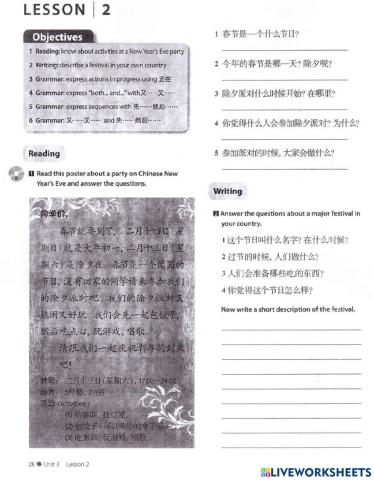 LESSON | 2
Objectives
1 Reading: know about activities at a New Year's Eve party
2 Writing: describe a festival in your own country
3 Grammar: express actions in progress using 正在
4 Grammar: express "both... and..." with 又……又……
5 Grammar: express sequences with 先……然后……
6 Grammar: 又……又…… and 先……然后……
Reading
1 Read this poster about a party on Chinese New
Year's Eve and answer the questions.
同学们,
春节就要到了, 二月十四日(星
期日)就是大年初一, 二月十三日(星
期六)是除夕夜。春节是一个团圆的
节日, 没有回家的同学请来参加我们
的除夕派对吧。我们的除夕派对又
热闹又好玩。我们会先一起包饺子,
然后吃点心, 玩游戏, 唱歌。
请跟我们一起庆祝新年的到来
吧!
时间: 二月十三日(星期六), 17:00—24:00
活动 (Activities):
(3) 吃东西, 玩游戏, 唱歌
28 Unit 3 Lesson 2
1 春节是一个什么节日?
2 今年的春节是哪一天? 除夕呢?
3 除夕派对什么时候开始? 在哪里?
4 你觉得什么人会参加除夕派对? 为什么?
5 参加派对的时候, 大家会做什么?
Writing
2 Answer the questions about a major festival in
your country.
1 这个节日叫什么名字? 在什么时候?
2 过节的时候, 人们做什么?
3 人们会准备哪些吃的东西?
4 你觉得这个节日怎么样?
Now write a short description of the festival.
LIVEWORKSHEETS